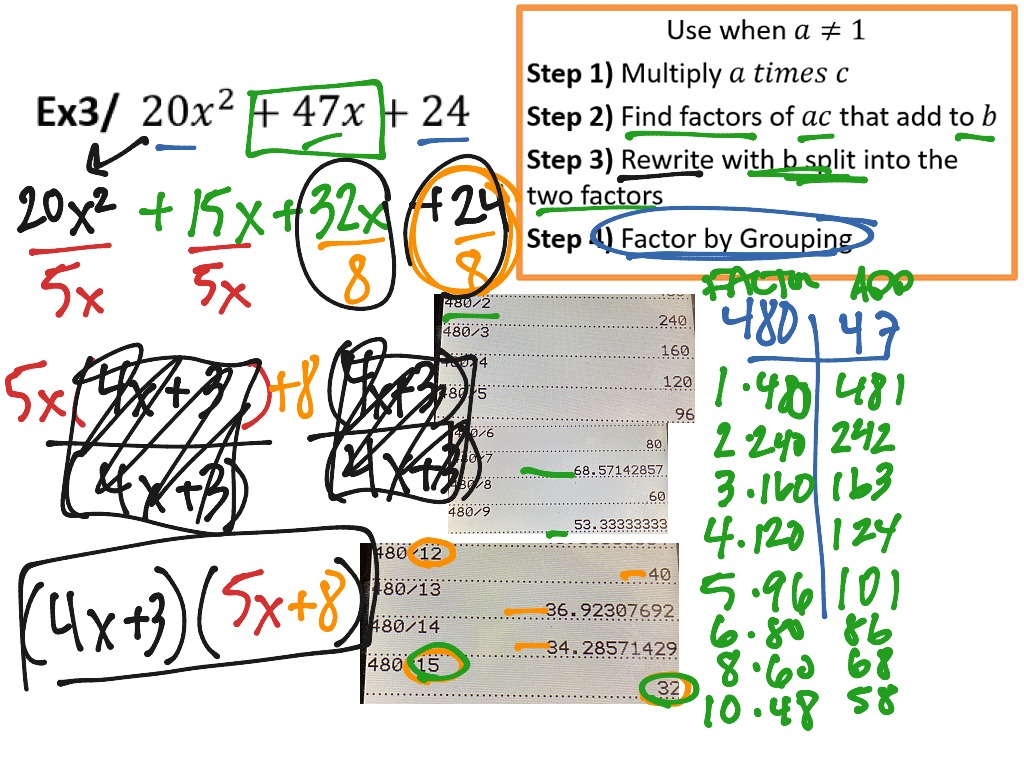 Use when a ≠ 1
Step 1) Multiply a times c
Step 2) Find factors of ac that add to b
Step 3) Rewrite with b split into the
two factors
Step 4) Factor by Grouping
Ex3/ 20x² + 47x + 24
20x² + 15x + 32x + 24
5x 5x 8 8
5x(4x+3)+8(4x+3)
(4x+3) (4x+3)
(4x+3)(5x+8)
480/2
240
480/3
160
480/4
120
480/5
96
480/6
80
480/7
68.57142857
480/8
60
480/9
53.33333333
480/12
40
480/13
36.92307692
480/14
34.28571429
480/15
32
FACTOR ADD
480 47
1·480 481
2·240 242
3·160 163
4·120 124
5·96 101
6·80 86
8·60 68
10·48 58